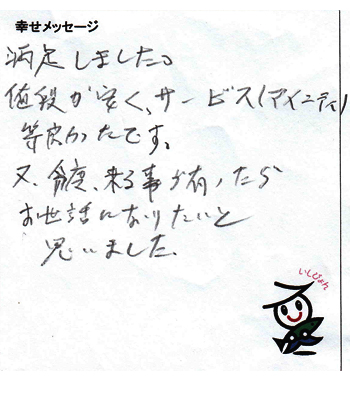 幸せメッセージ
満足しました。
値段が安く、サービス(アメニティ)
等良かったです。
又、今度、来る事が有ったら
お世話になりたいと
思いました。
いしぴょん